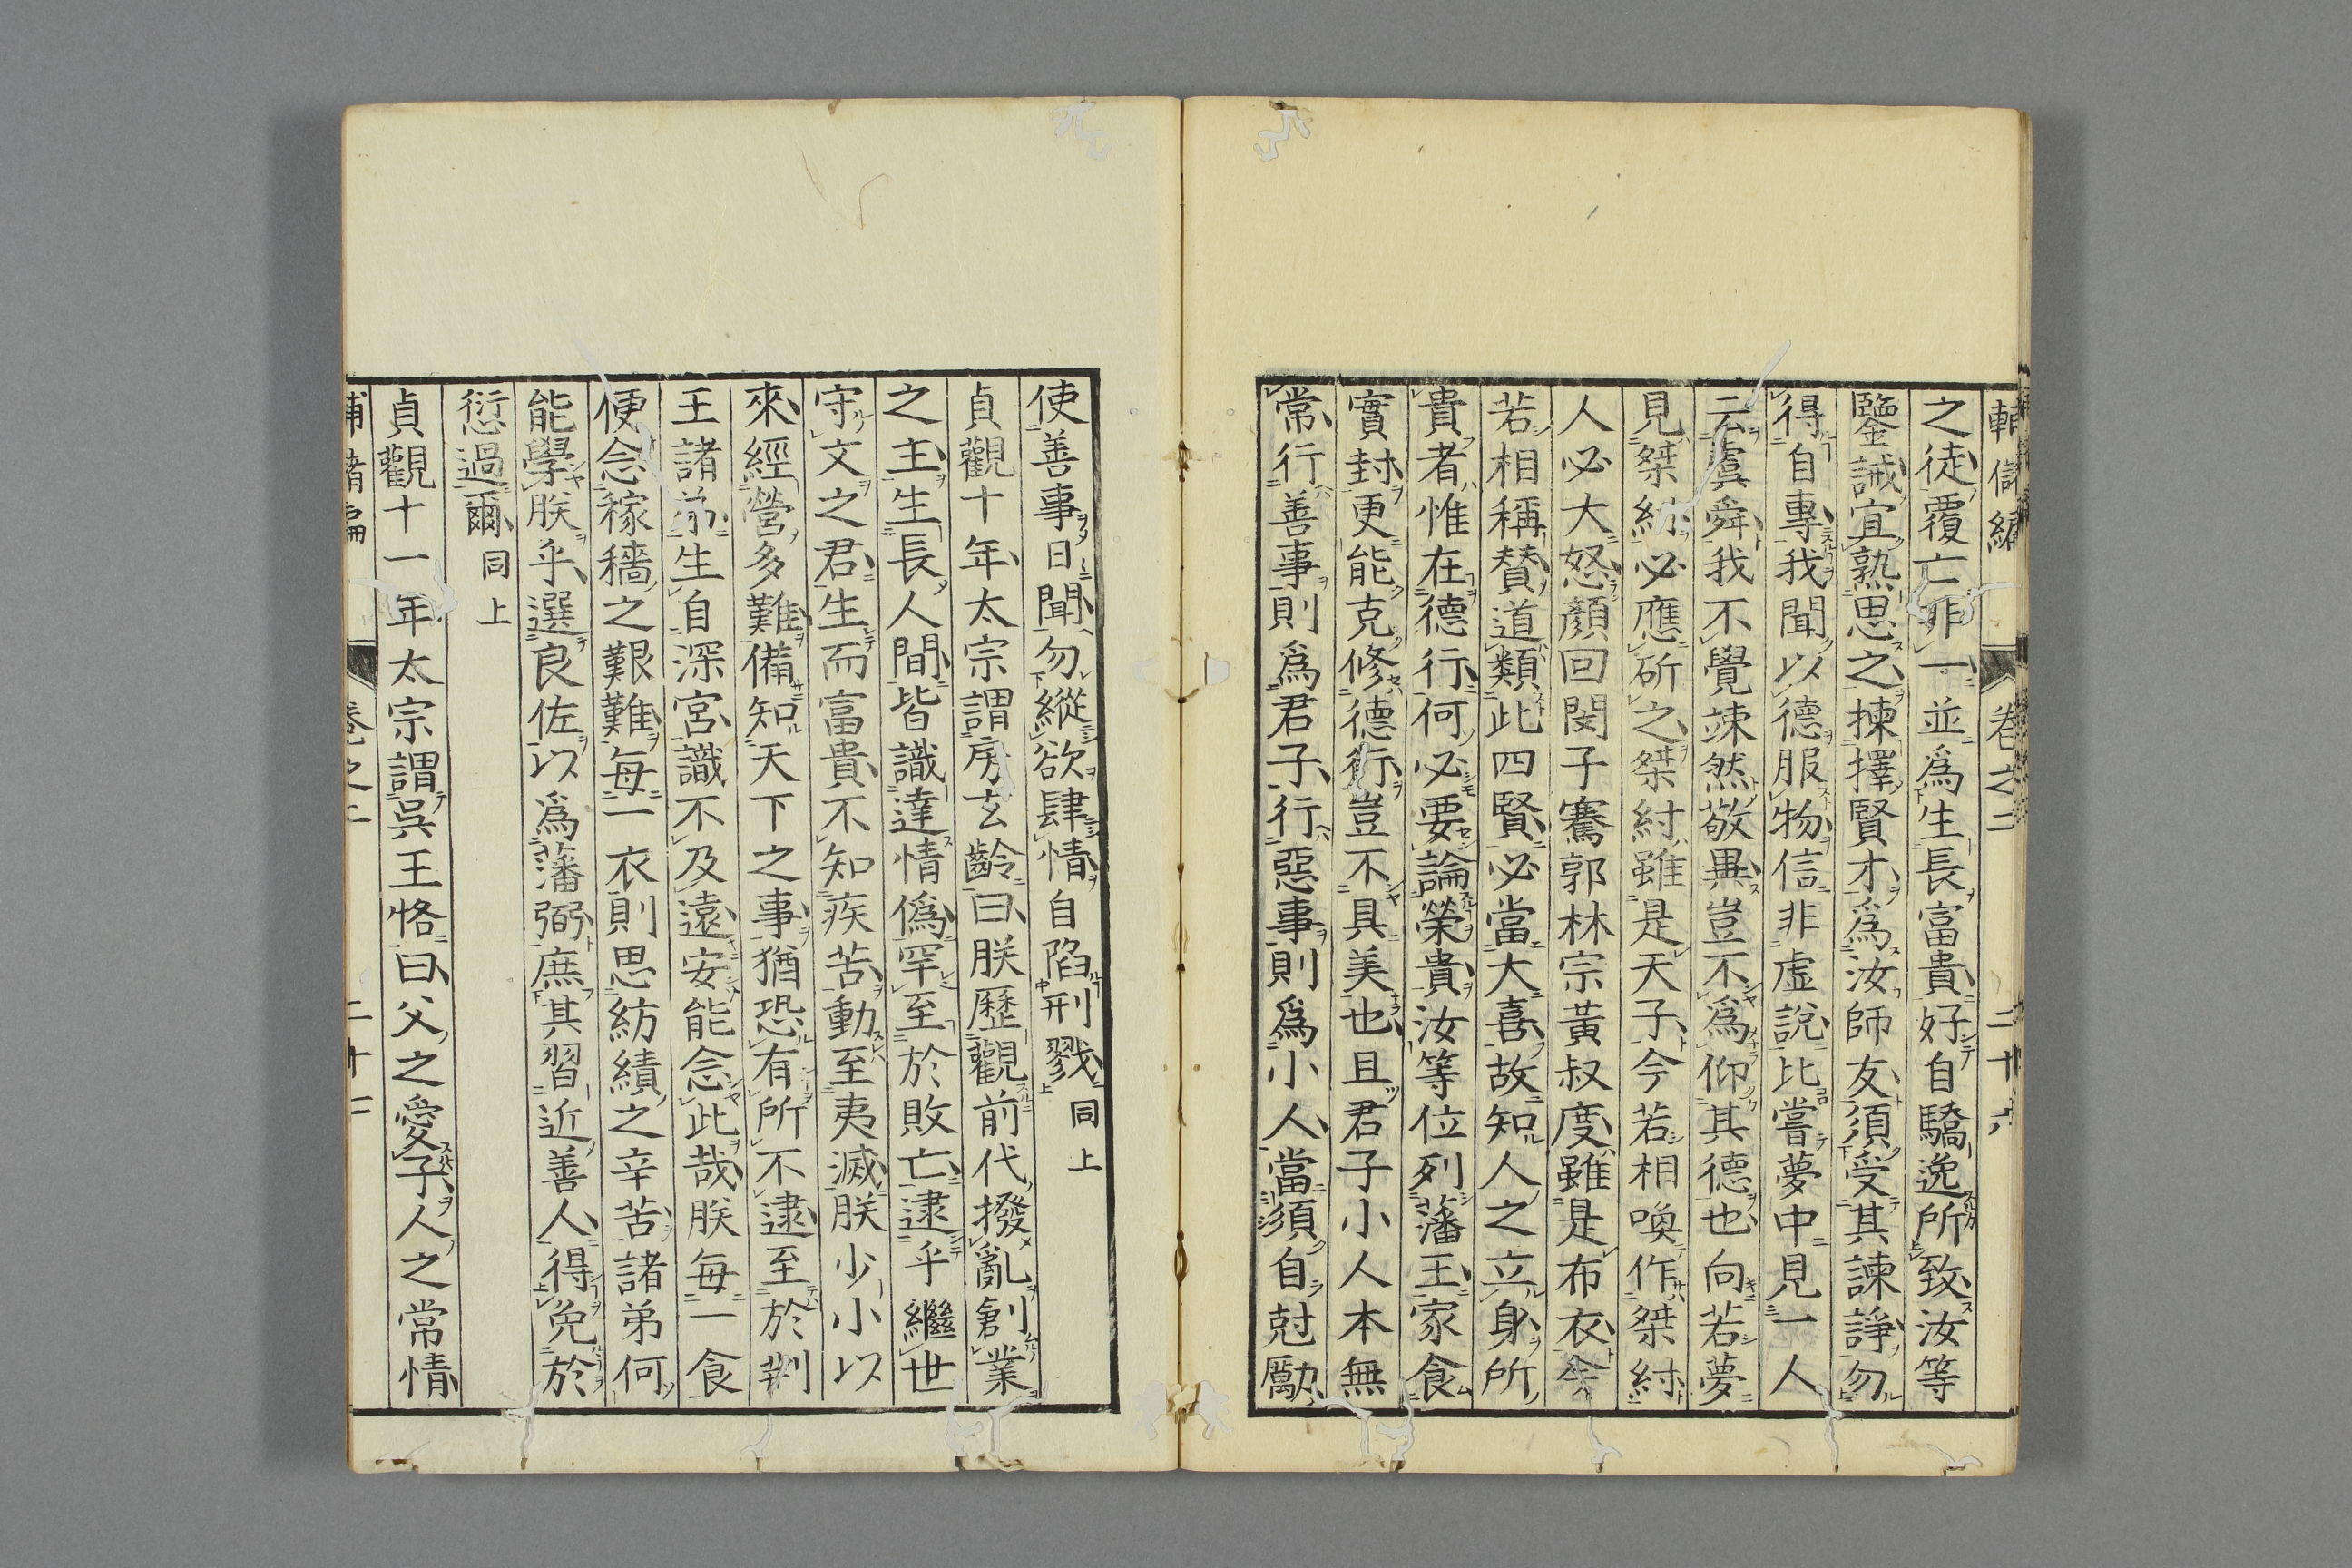 輔儲編 卷之二 二十六
之徒覆亡非一並爲生長富貴好自驕逸所致汝等
鑒誡宜熟思之揀擇賢才爲汝師友須受其諫諍勿
得自專我聞以德服物信非虛說比嘗夢中見一人
云虞舜我不覺竦然敬異豈不爲仰其德也向若夢
見桀紂必應斫之桀紂雖是天子今若相喚作桀紂
人必大怒顏回閔子騫郭林宗黃叔度雖是布衣今
若相稱賛道類此四賢必當大喜故知人之立身所
貴者惟在德行何必要論榮貴汝等位列藩王家食
實封更能克修德行豈不具美也且君子小人本無
常行善事則爲君子行惡事則爲小人當須自尅勵
使善事日聞勿縱欲肆情自陷刑戮同上
貞觀十年太宗謂房玄齡曰朕歷觀前代撥亂創業
之主生長人間皆識達情僞罕至於敗亡逮乎繼世
守文之君生而富貴不知疾苦動至夷滅朕少小以
來經營多難備知天下之事猶恐有所不逮至於荆
王諸弟生自深宮識不及遠安能念此哉朕每一食
便念稼穡之艱難每一衣則思紡績之辛苦諸弟何
能學朕乎選良佐以爲藩弼庶其習近善人得免於
愆過爾同上
貞觀十一年太宗謂吳王恪曰父之愛子人之常情
輔儲編 卷之二